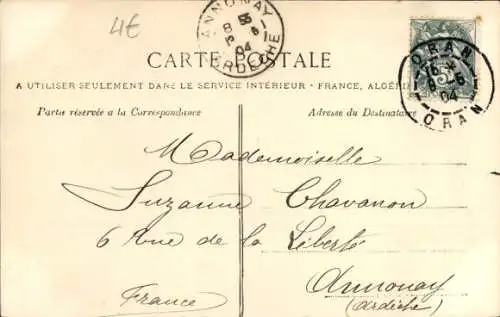 4€
ANNONAY
ARDECHE
04
CARTE POSTALE
A UTILISER SEULEMENT DANS LE SERVICE INTÉRIEUR - FRANCE, ALGÉRIE
Partie réservée a la Correspondance
Adresse du Destinataire
ORAN
04
ORAN
Mademoiselle
Suzanne Chavanon
6 Rue de la Liberté
Annonay
(Ardèche)
France